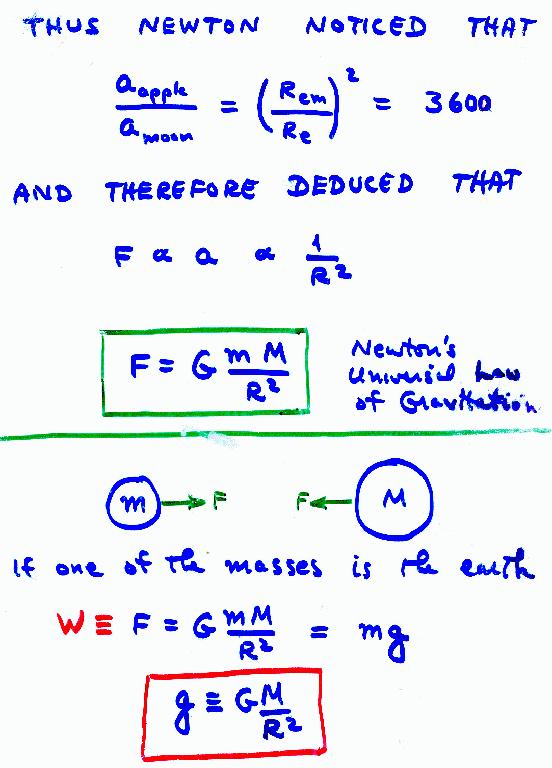 THUS NEWTON NOTICED THAT
a_apple / a_moon = (R_em / R_e)² = 3600
AND THEREFORE DEDUCED THAT
F ∝ a ∝ 1 / R²
F = G mM / R²
Newton's
Universal Law
of Gravitation
m → F F ← M
If one of the masses is the earth
W ≡ F = G mM / R² = mg
g ≡ G M / R²